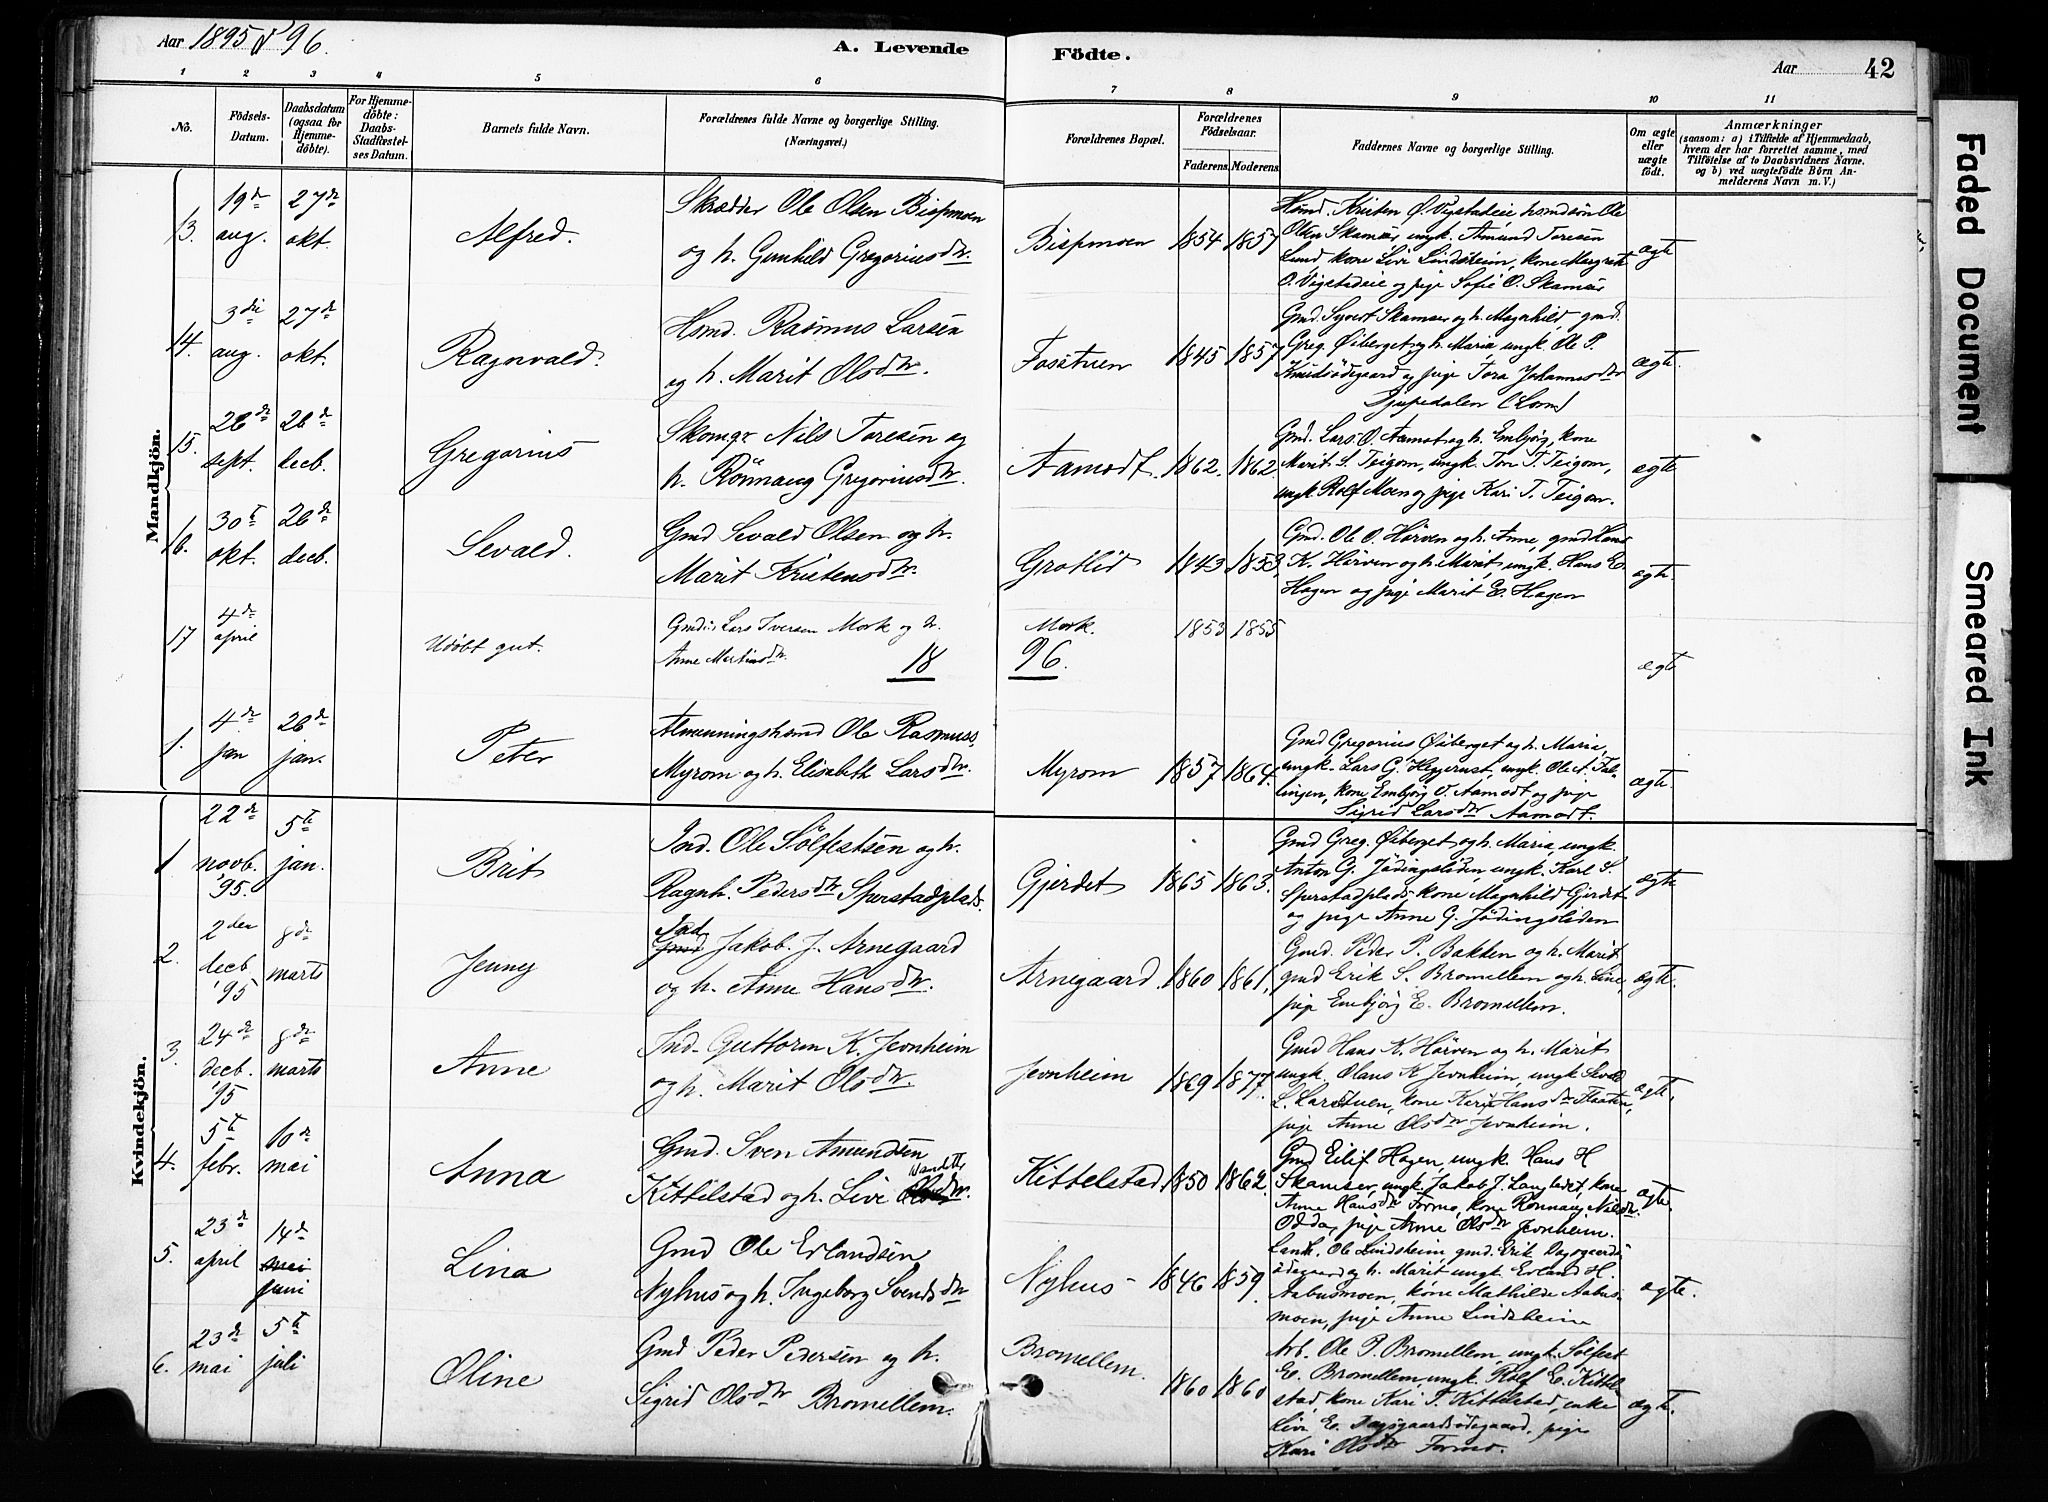 Aar 1895 & 96.
A. Levende Födte.
Aar 42
1 2 3 4 5 6 7 8 9 10 11
No.
Födsels-
Datum.
Daabsdatum
(ogsaa for
Hjemme-
döbte).
For Hjemme-
döbte:
Daabs-
Stadfæstel-
ses Datum.
Barnets fulde Navn.
Forældrenes fulde Navne og borgerlige Stilling.
(Næringsvei.)
Forældrenes Bopæl.
Forældrenes
Födselsaar.
Faderens. Moderens.
Faddernes Navne og borgerlige Stilling.
Om ægte
eller
uægte
født.
Anmærkninger
(saasom: a) i Tilfælde af Hjemmedaab,
hvem der har forrettet samme, med
Tilföielse af to Daabsvidners Navne.
og b) ved uægtefödte Börn An-
melderens Navn m. V.)
Mandkjön.
13. 19de aug. 27de okt.
Alfred.
Skrædder Ole Olsen Bispmoen
og h. Gunhild Gregoriusdtr.
Bispmoen 1854 1857
Hsmd. Kristen Ø. Vigstadeie husmdsön Ole
Olsen Skamsar ungk. Amund Toresen
Lund, kone Livi Lindsheim, kone Margrete
O. Vigstadeie og pige Sofie O. Skamsar
ægte
14. 3die aug. 27de okt.
Ragnvald.
Hsmd. Rasmus Larsen
og h. Marit Olsdtr.
Fossтuen 1845 1857
Gmd. Syvert Skamsar og h. Magnhild, gmd.
Greg. Øiberget og h. Maria, ungk. Ole P.
Knudsödegaard og pige Tora Johannesdtr
Djupedalen (Lom)
ægte.
15. 28de sept. 26de decb.
Gregorius
Skomgr Nils Toresen og
h. Rönnaug Gregoriusdtr.
Aamodt. 1862. 1862.
Gmd. Lars O. Aamot og h. Embjörg, kone
Marit S. Teigom, ungk. Tor T. Teigom,
ungk. Rolf Moen og pige Kari T. Teigom.
ægte
16. 30te okt. 26de decb.
Sevald.
Gmd Sevald Olsen og h.
Marit Kristensdtr.
Grotlid 1843 1853
Gmd. Ole O. Hörven og h. Anne, gmd Hans
K. Hörven og h. Marit, ungk. Hans E.
Hagen og pige Marit E. Hagen
ægte.
17 4de april
Udöbt gut.
Lars Iversen Mork og h.
Anne Martinsdtr.
Mork. 1853 1855
ægte
18 96.
1. 4de jan 26de jan.
Peter
Almenningshusmd Ole Rasmuss.
Myrom og h. Elisabeth Larsdtr.
Myrom 1857 1864.
Gmd Gregorius Øiberget og h. Maria,
ungk. Lars G. Heggerust, ungk. Ole A. Fal-
lingen, kone Embjörg O. Aamodt og pige
Sigrid Larsdtr Aamodt.
ægte.
Kvindekjön.
1 22de novb. 95. 5te jan.
Brit
Ind. Ole Sölfestsen og h.
Ragnh. Pedersdtr Sperstadplads.
Gjerdet 1865 1863.
Gmd Greg. Øiberget og h. Maria ungk.
Anton G. Jödingsliden, ungk. Karl S.
Sperstadplads, kone Magnhild Gjerdet
og pige Anne G. Jödingsliden
ægte
2. 2den decb '95 8de marts
Jenny
Ind. Jakob J. Arnegaard
og h. Anne Hansdtr.
Arnegaard. 1860 1861,
Gmd. Peder P. Bakken og h. Marit
gmd Erik S. Bromellem og h. Line,
pige Embjörg E. Bromellem.
ægte.
3. 24de decb. '95 8de marts
Anne
Ind. Guttorm K. Jevnheim
og h. Marit Olsdtr.
Jevnheim 1869 1877.
Gmd Hans K. Hörven og h. Marit
ungk. Olaus K Jevnheim, ungk Sevald
L. Larstuen, kone Kari Hansdtr Flaaten,
pige Anne Olsdtr Jevnheim.
ægte,
4. 5te febr. 10de mai
Anna
Gmd. Sven Amundsen
Kittilstad og h. Livi
Kittelstad. 1850 1862.
Gmd Eilif Hagen, ungk. Hans H
Skamsar, ungk. Jakob J. Langledet, kone
Anne Hansdtr Formo, kone Rönnaug Nilsdtr.
Odda, pige Anne Olsdtr Jevnheim.
ægte.
5. 23de april 14de mai juni
Lina
Gmd Ole Erlandsen
Nyhus og h. Ingeborg Svendsdtr
Nyhus 1846 1859
Ole Lindsheim gmd. Erik Dagsgaards-
ödegaard og h. Marit ungk Erland H.
Aabusmoen, kone Mathilde Aabus-
moen, pige Anne Lindsheim
ægte.
6. 23de mai 5te juli
Oline
Gmd Peder Pedersen og h.
Sigrid Olsdtr Bromellem.
Bromellem. 1860 1860
Arb. Ole P. Bromellem, ungk. Sölfest
E. Bromellem, ungk. Rolf E. Kittil-
stad, kone Kari T. Kittelstad, enke
Livi E. Dagsgaardsödegaard, pige
Kari Olsdtr Formo.
ægte.
Faded Document
Smeared Ink